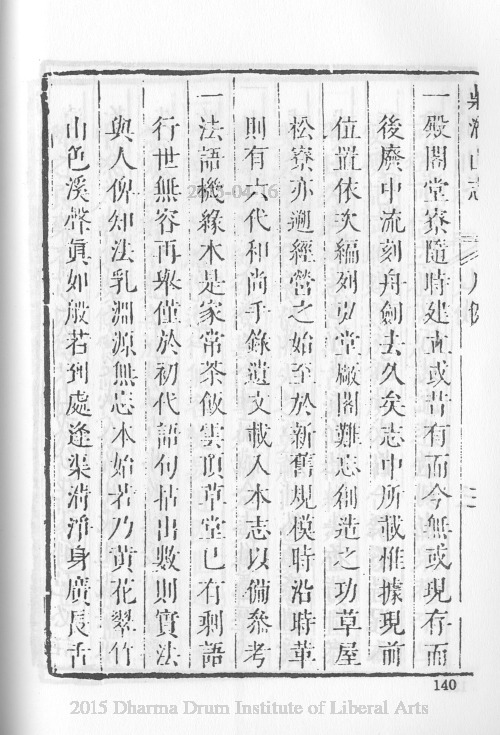 山志 凡例 二
一殿閣堂寮隨時建立或昔有而今無或現存而
後廢中流刻舟劍去久矣志中所載惟據現前
位置依次編列弘堂廠閣難忘創造之功草屋
松寮亦遡經營之始至於新舊規模時沿時革
則有六代和尚手錄遺文載入本志以備叅考
一法語機緣本是家常茶飯雲頂草堂已有剩語
行世無容再舉僅於初代語句拈出數則實法
與人俾知法乳淵源無忘本始若乃黃花翠竹
山色溪聲眞如般若到處逢渠淸淨身廣長舌
140
2015-04-16
2015 Dharma Drum Institute of Liberal Arts